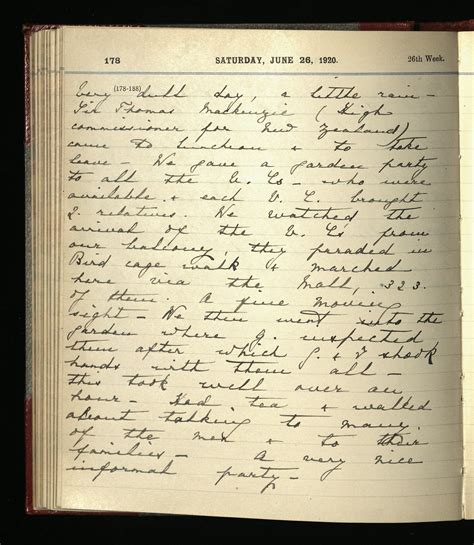 178 SATURDAY, JUNE 26, 1920. 26th Week.
(178-188)
Very dull day, a little rain -
Sir Thomas Mackenzie (High
commissioner for New Zealand)
came to luncheon & to take
leave - We gave a garden party
to all the V. Cs - who were
available & each V. C. brought
2. relatives. We watched the
arrival of the V. Cs from
our balcony, they paraded in
Bird cage walk & marched
here via the Mall, 323.
of them. A fine moving
sight - We then went into the
garden where G. inspected
them after which G. & I shook
hands with them all -
this took well over an
hour - Had tea & walked
about talking to many.
of the men & to their
families - A very nice
informal party -